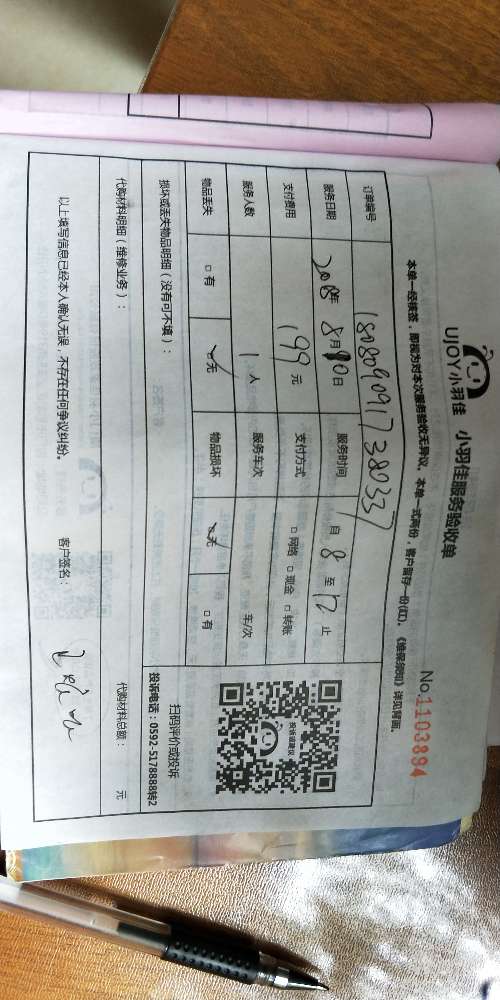 UJOY小羽佳 小羽佳服务验收单
No.1103894
本单一经核签，即视为对本次服务验收无异议。本单一式两份，客户留存一份(红)。《维保须知》详见背面。
订单编号 1808090917380337
服务日期 2018年8月10日 服务时间 自8至12止
支付费用 199元 支付方式 □网络 □现金 □转账
服务人数 1人 服务车次 车/次
物品丢失 □有 ☑无 物品损坏 ☑无 □有
扫码评价或投诉
投诉电话：0592-5178888转2
损坏或丢失物品明细（没有可不填）：
代购材料明细（维修业务）： 代购材料总额： 元
以上填写信息已经本人确认无误，不存在任何争议纠纷。 客户签名：